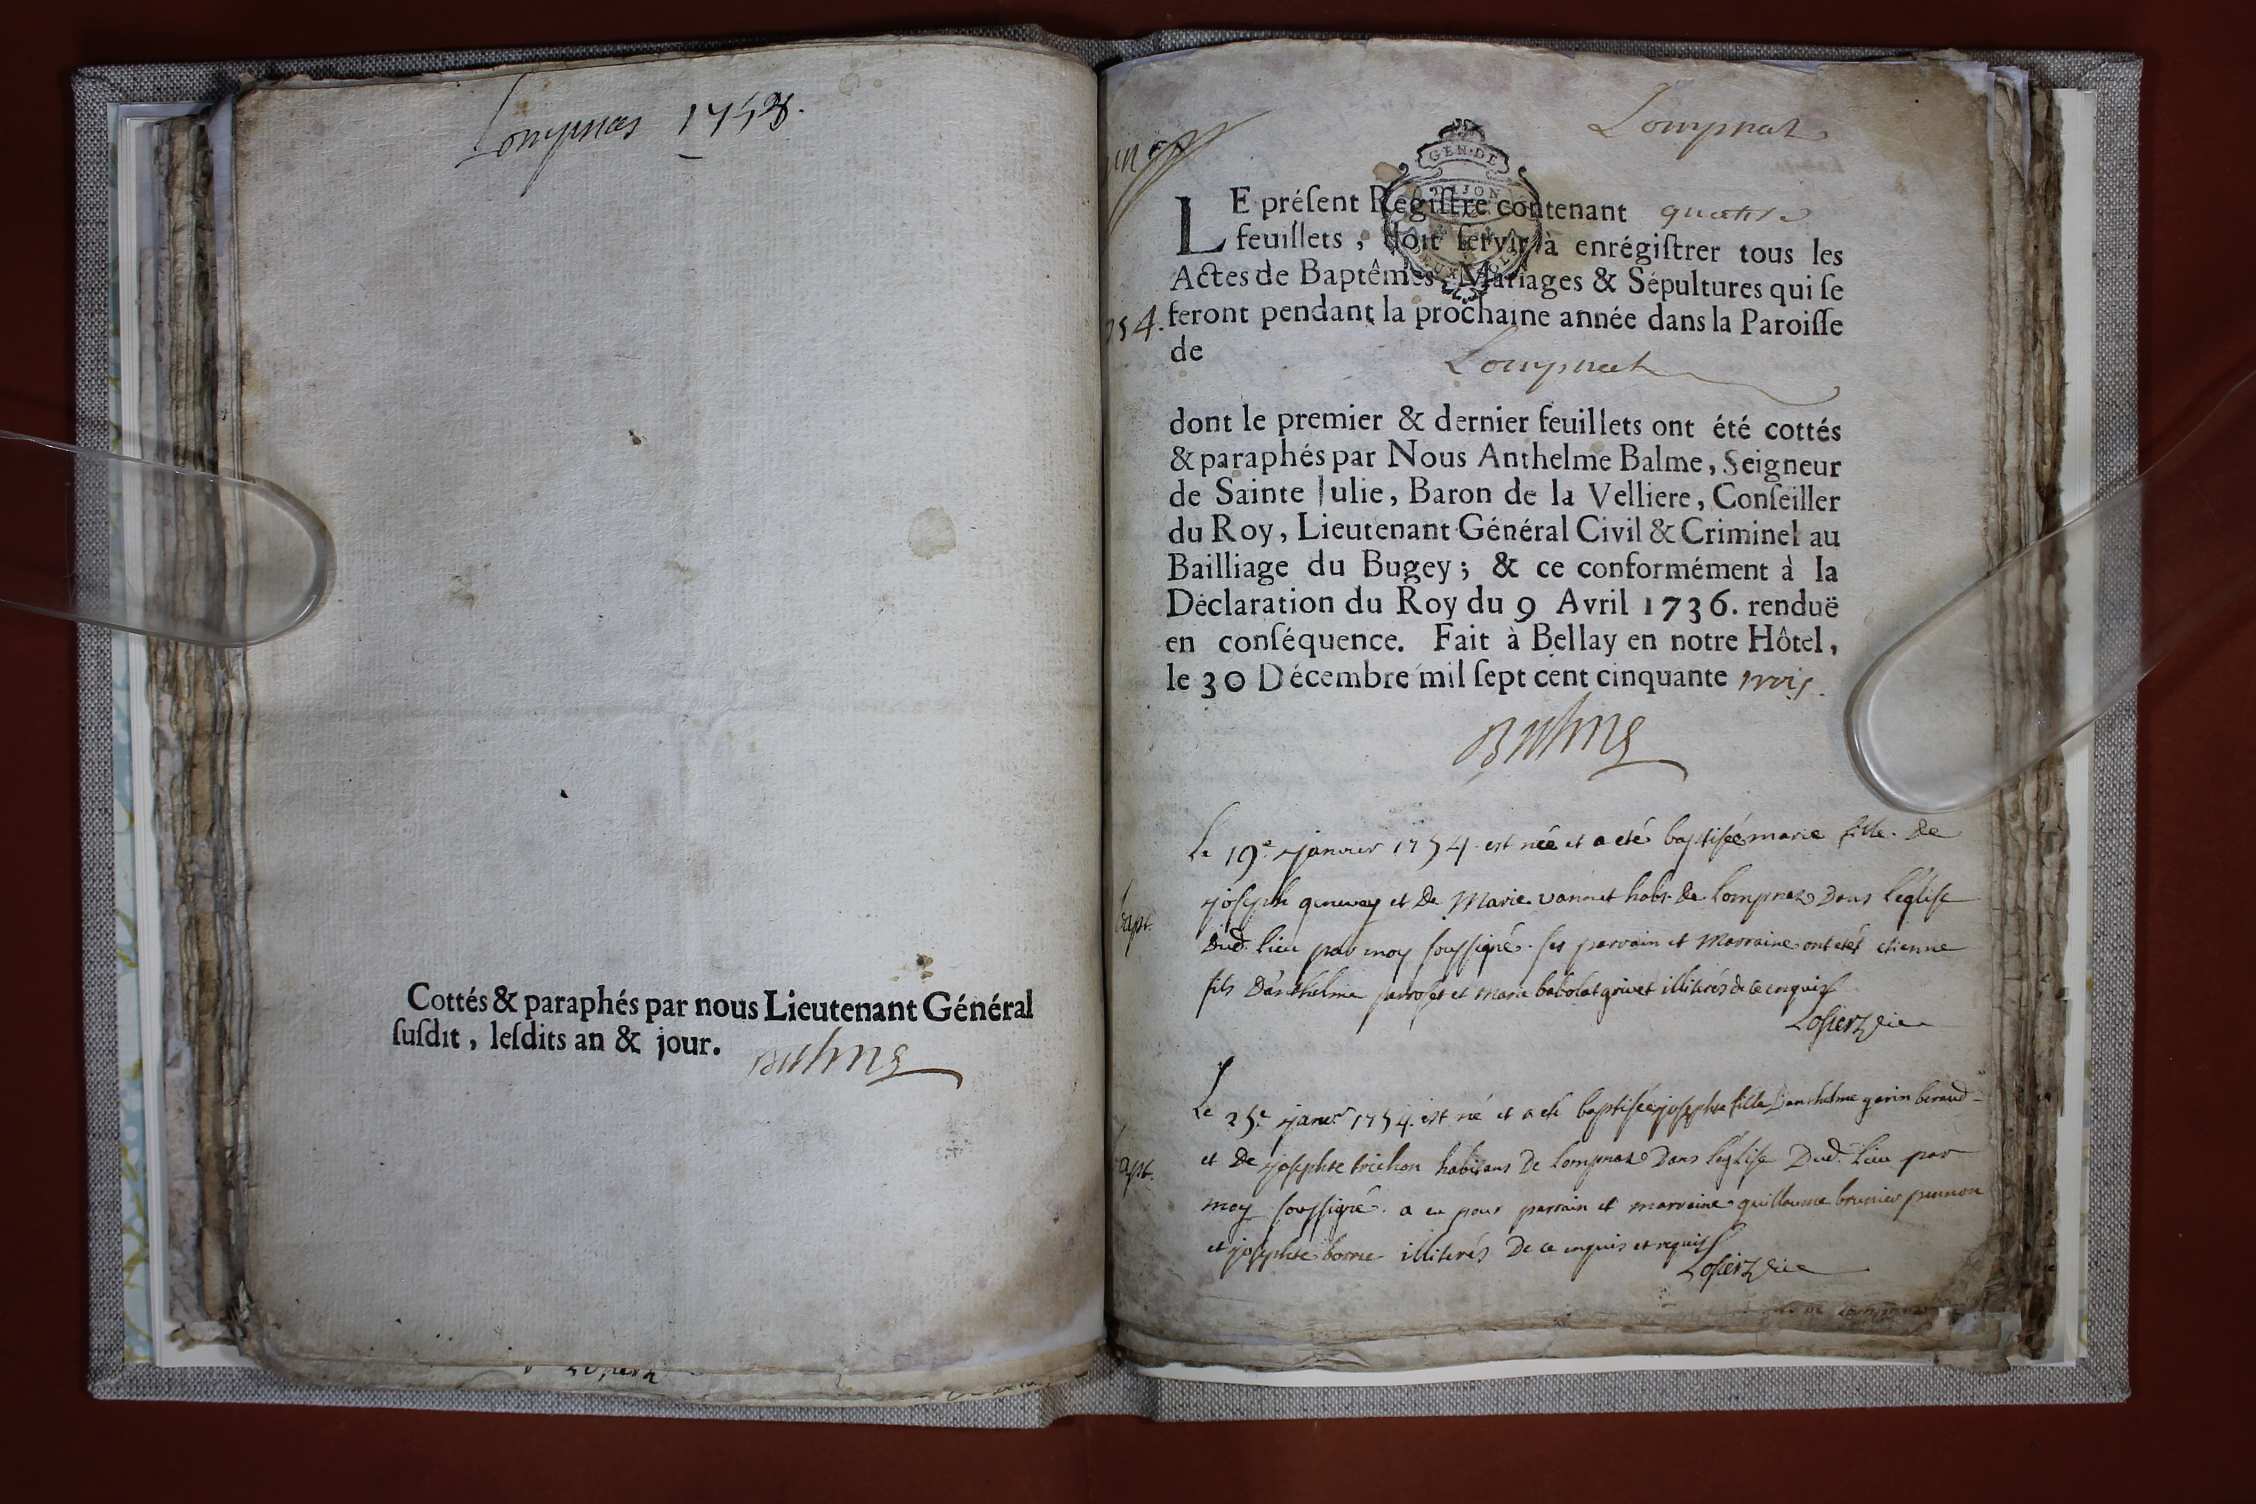 Lompnas 1753.
Cottés & paraphés par nous Lieutenant Général
ſuſdit, leſdits an & jour.
Balme
Lompnas
GEN·DE
DIJON
LE préſent Regiſtre contenant quatre
feuillets, doit ſervir à enrégiſtrer tous les
Actes de Baptêmes, Mariages & Sépultures qui ſe
feront pendant la prochaine année dans la Paroiſſe
de Lompnas
754.
dont le premier & dernier feuillets ont été cottés
& paraphés par Nous Anthelme Balme, Seigneur
de Sainte Julie, Baron de la Velliere, Conſeiller
du Roy, Lieutenant Général Civil & Criminel au
Bailliage du Bugey; & ce conformément à la
Déclaration du Roy du 9 Avril 1736. renduë
en conſéquence. Fait à Bellay en notre Hôtel,
le 30 Décembre mil ſept cent cinquante trois.
Balme
bapt.
Le 19e janvier 1754 est née et a eté baptisée marie fille de
joseph genevey et De Marie vannet habt. de lompnaz Dans l'eglise
Dud. lieu par moy soussigné. ses parrain et Marraine ont etés etienne
fils D'anthelme et Marie babolat grivet illiterés de ce enquis
bapt.
Le 25e janvr 1754. est né et a eté baptisée josephte fille Danthelme garin beraud
et De josephte trichon habitans De lompnaz Dans l'église Dud. lieu par
moy soussigné. a eu pour parrain et marraine guillaume brunier
et josephte borne illiterés De ce enquis et requis